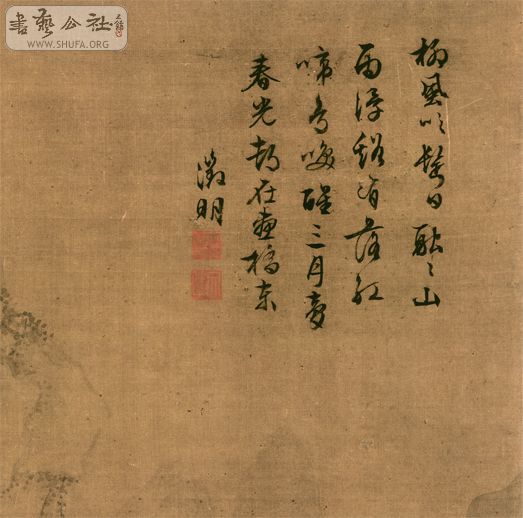 書藝公社
WWW.SHUFA.ORG
柳風吹鬢日融〻山
雨浮谿有落紅
啼鳥喚醒三月夢
春光都在畫橋東
徵明